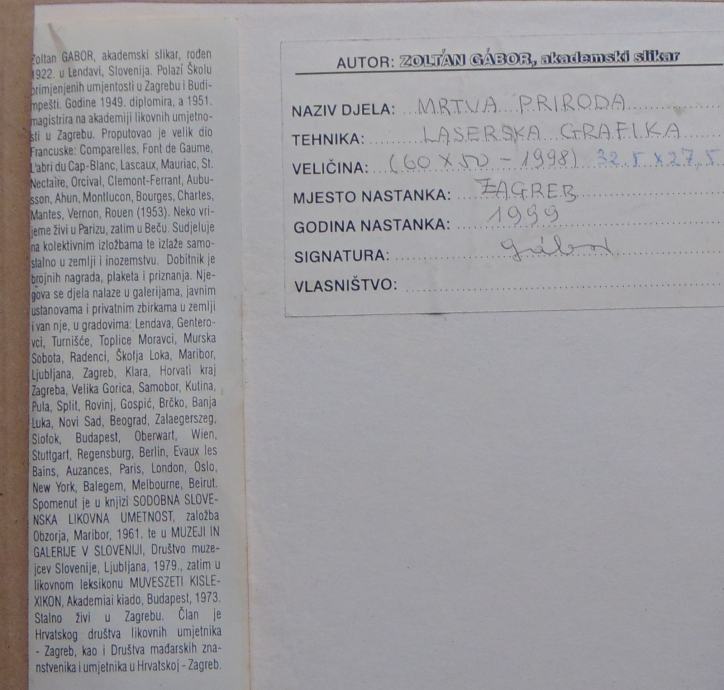 Zoltan GABOR, akademski slikar, rođen
1922. u Lendavi, Slovenija. Polazi Školu
primjenjenih umjentosti u Zagrebu i Budi-
mpešti. Godine 1949. diplomira, a 1951.
magistrira na akademiji likovnih umjetno-
sti u Zagrebu. Proputovao je velik dio
Francuske: Comparelles, Font de Gaume,
L'abri du Cap-Blanc, Lascaux, Mauriac, St.
Nectaire, Orcival, Clemont-Ferrant, Aubu-
sson, Ahun, Montlucon, Bourges, Chartes,
Mantes, Vernon, Rouen (1953). Neko vri-
jeme živi u Parizu, zatim u Beču. Sudjeluje
na kolektivnim izložbama te izlaže samo-
stalno u zemlji i inozemstvu. Dobitnik je
brojnih nagrada, plaketa i priznanja. Nje-
gova se djela nalaze u galerijama, javnim
ustanovama i privatnim zbirkama u zemlji
i van nje, u gradovima: Lendava, Gentero-
vci, Turnišće, Toplice Moravci, Murska
Sobota, Radenci, Školja Loka, Maribor,
Ljubljana, Zagreb, Klara, Horvati kraj
Zagreba, Velika Gorica, Samobor, Kutina,
Pula, Split, Rovinj, Gospić, Brčko, Banja
Luka, Novi Sad, Beograd, Zalaegerszeg,
Siofok, Budapest, Oberwart, Wien,
Stuttgart, Regensburg, Berlin, Evaux les
Bains, Auzances, Paris, London, Oslo,
New York, Balegem, Melbourne, Beirut.
Spomenut je u knjizi SODOBNA SLOVE-
NSKA LIKOVNA UMETNOST, založba
Obzorja, Maribor, 1961. te u MUZEJI IN
GALERIJE V SLOVENIJI, Društvo muze-
jcev Slovenije, Ljubljana, 1979., zatim u
likovnom leksikonu MUVESZETI KISLE-
XIKON, Akademiai kiado, Budapest, 1973.
Stalno živi u Zagrebu. Član je
Hrvatskog društva likovnih umjetnika
- Zagreb, kao i Društva mađarskih zna-
nstvenika i umjetnika u Hrvatskoj - Zagreb.
AUTOR: ZOLTÁN GÁBOR, akademski slikar
NAZIV DJELA: MRTVA PRIRODA
TEHNIKA: LASERSKA GRAFIKA
VELIČINA: (60 X 50 - 1998) 32.5 x 27.5
MJESTO NASTANKA: ZAGREB
GODINA NASTANKA: 1999
SIGNATURA: Gábor
VLASNIŠTVO: